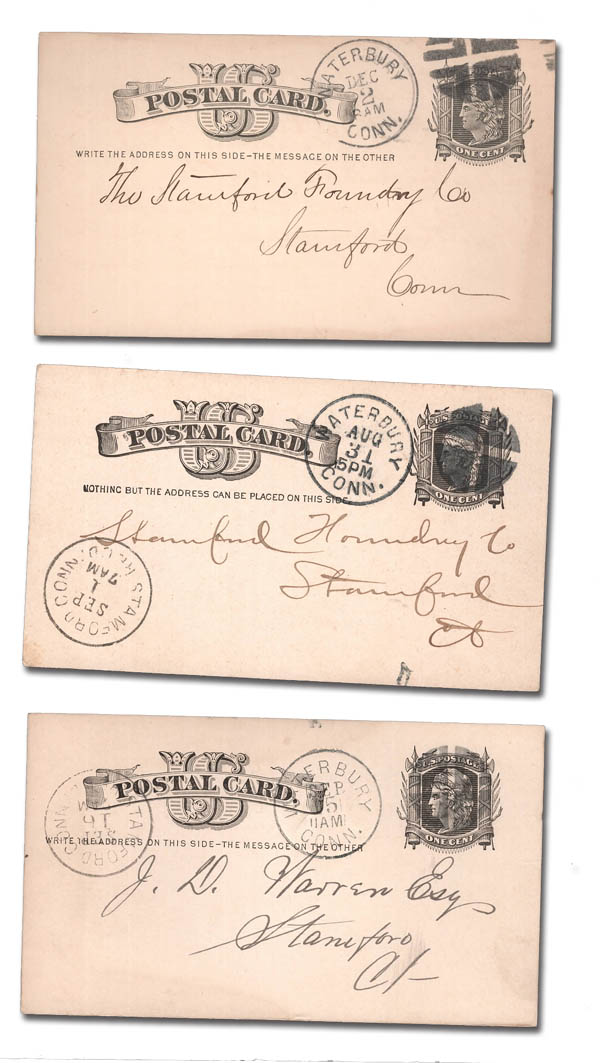 US
POSTAL CARD.
WATERBURY
DEC
2
8AM
CONN.
ONE CENT
WRITE THE ADDRESS ON THIS SIDE–THE MESSAGE ON THE OTHER
The Stamford Foundry Co
Stamford
Conn
US
POSTAL CARD.
WATERBURY
AUG
31
5PM
CONN.
U.S. POSTAGE
ONE CENT
NOTHING BUT THE ADDRESS CAN BE PLACED ON THIS SIDE.
Stamford Foundry Co
Stamford
Ct
STAMFORD CONN. REC'D.
SEP
1
7AM
US
POSTAL CARD.
ERBURY
EP
5
11AM
CONN.
U.S. POSTAGE
ONE CENT
STAMFORD CONN.
WRITE THE ADDRESS ON THIS SIDE–THE MESSAGE ON THE OTHER
J. D. Warren Esq
Stamford
Ct